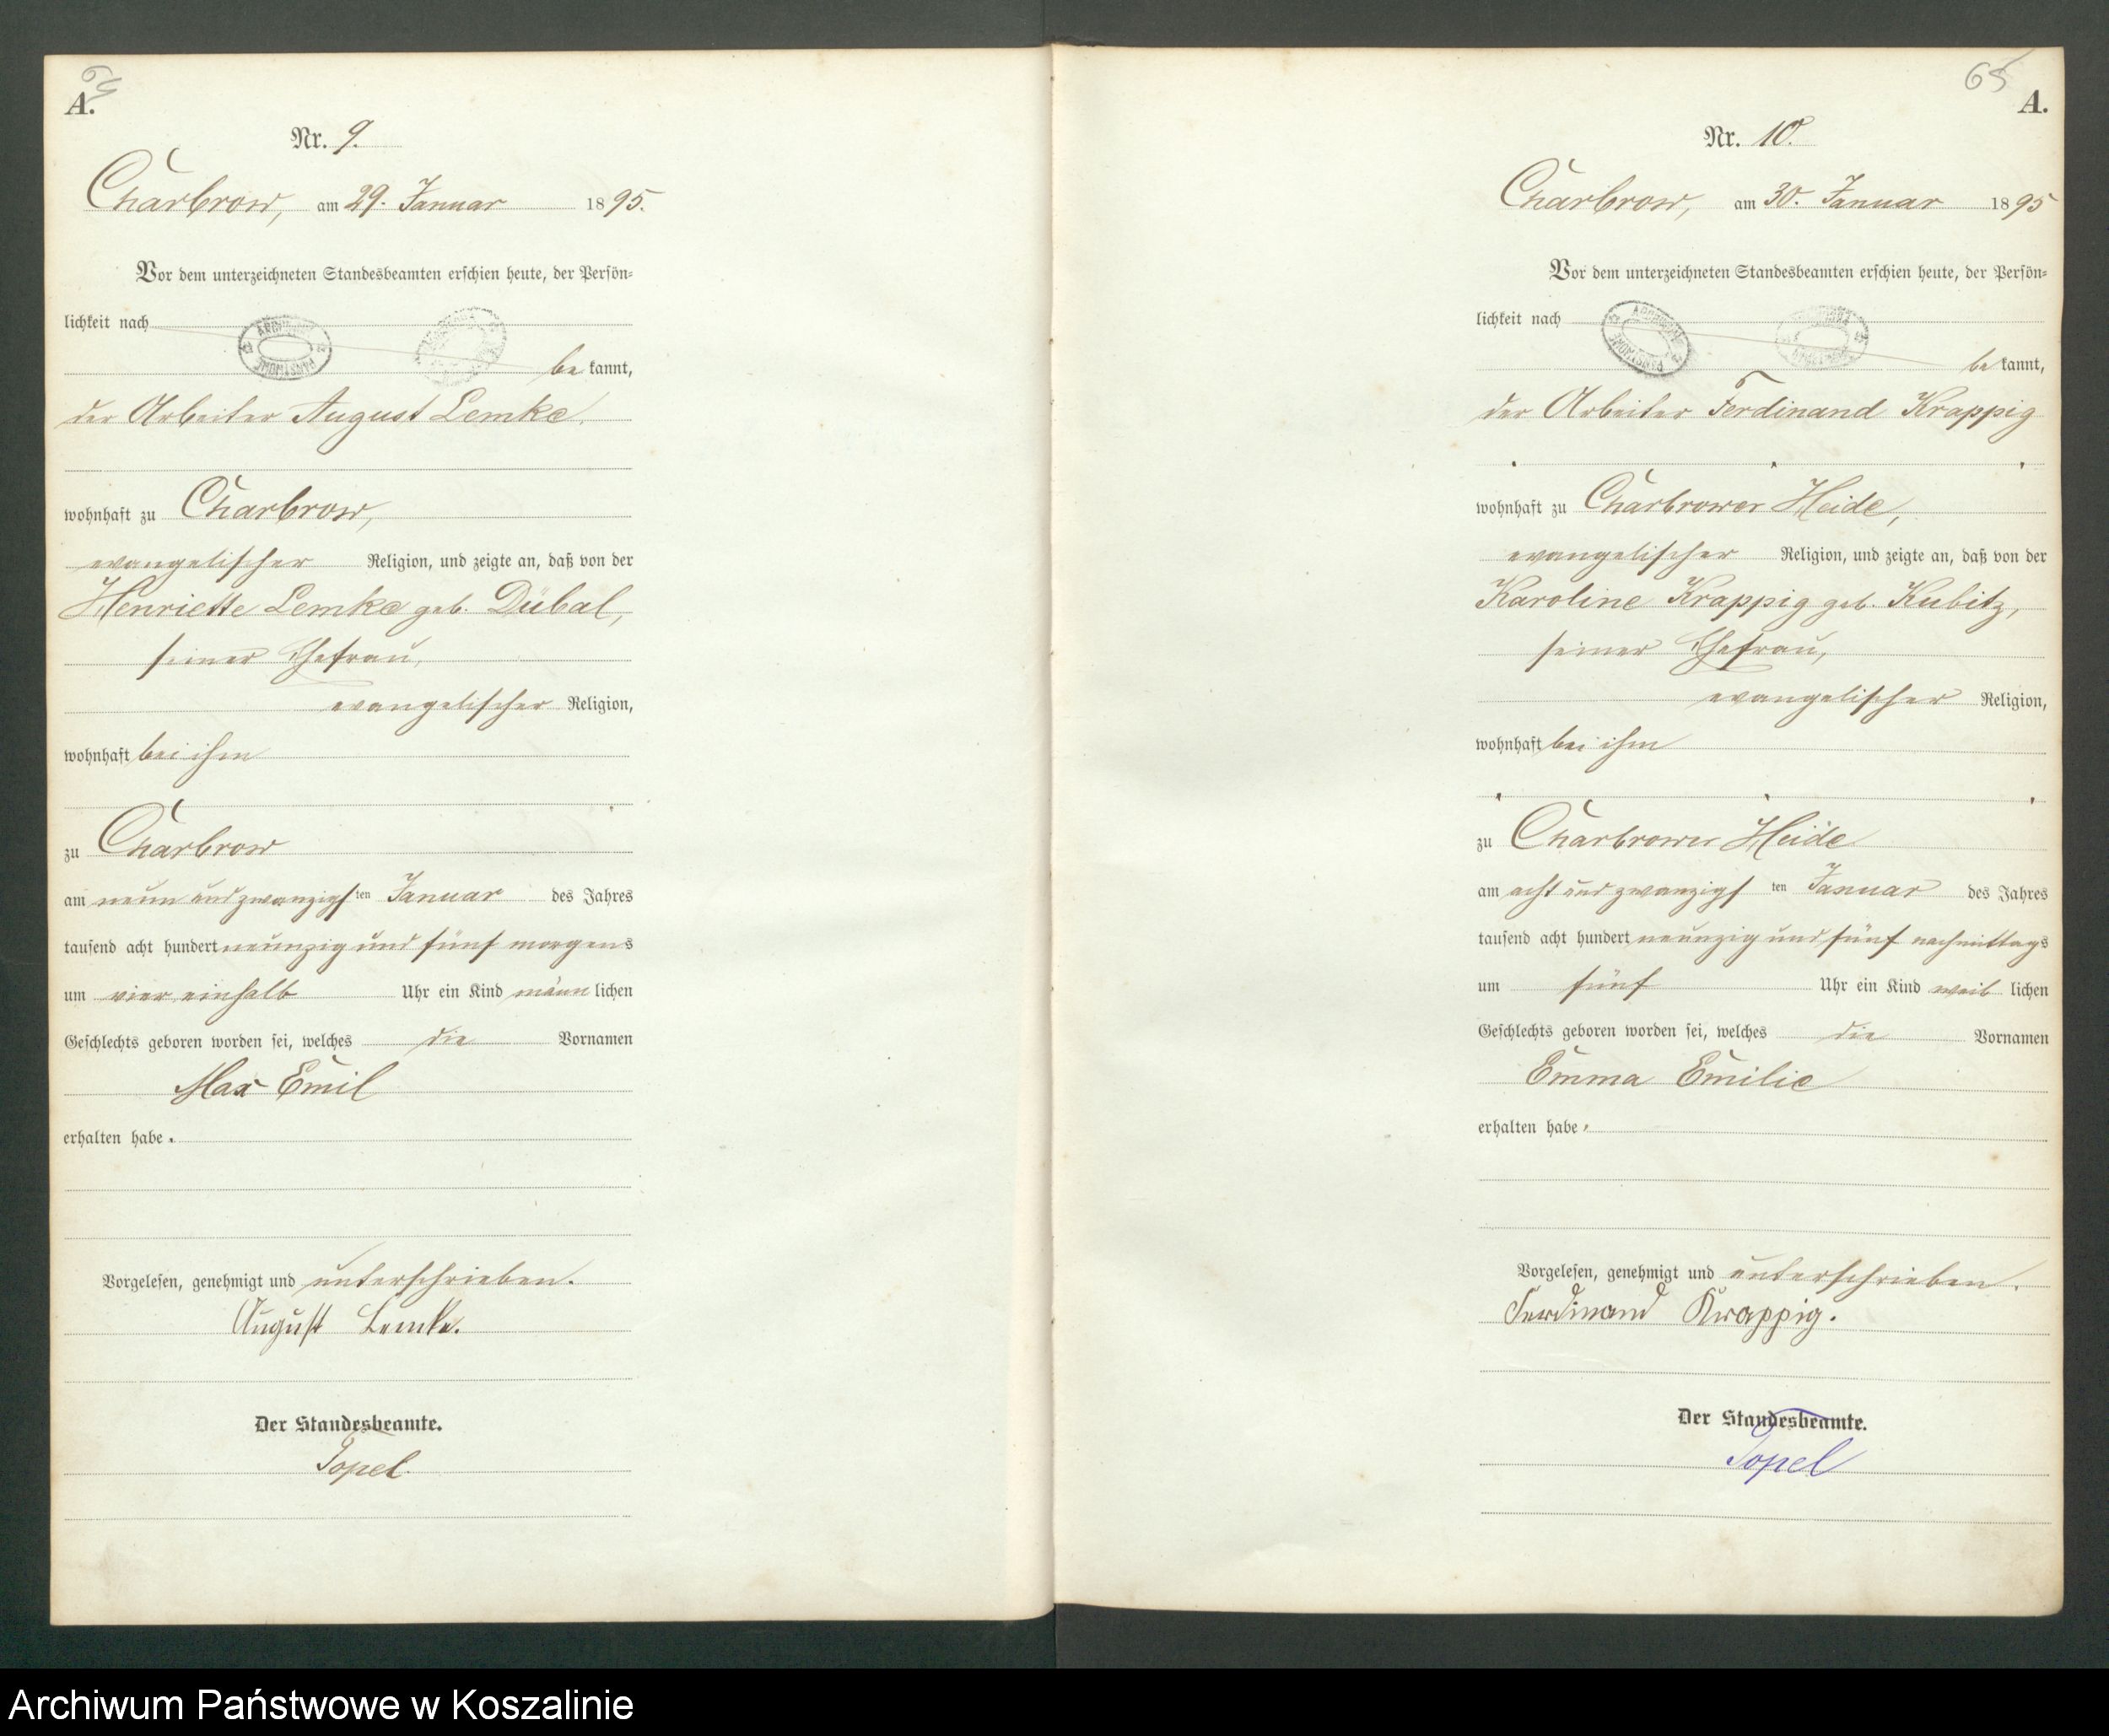 A.
Nr. 9.
Charbrow, am 29. Januar 1895.
Vor dem unterzeichneten Standesbeamten erschien heute, der Persön-
lichkeit nach
be kannt,
der Arbeiter August Lemke,
wohnhaft zu Charbrow,
evangelischer Religion, und zeigte an, daß von der
Henriette Lemke geb. Dübal,
seiner Ehefrau,
evangelischer Religion,
wohnhaft bei ihm
zu Charbrow
am neun und zwanzigsten Januar des Jahres
tausend acht hundert neunzig und fünf morgens
um vier einhalb Uhr ein Kind männlichen
Geschlechts geboren worden sei, welches die Vornamen
Max Emil
erhalten habe.
Vorgelesen, genehmigt und unterschrieben.
August Lemke.
Der Standesbeamte.
Topel
65
A.
Nr. 10.
Charbrow, am 30. Januar 1895
Vor dem unterzeichneten Standesbeamten erschien heute, der Persön-
lichkeit nach
be kannt,
der Arbeiter Ferdinand Krappig
wohnhaft zu Charbrower Heide,
evangelischer Religion, und zeigte an, daß von der
Karoline Krappig geb. Kubitz,
seiner Ehefrau,
evangelischer Religion,
wohnhaft bei ihm
zu Charbrower Heide
am acht und zwanzigsten Januar des Jahres
tausend acht hundert neunzig und fünf nachmittags
um fünf Uhr ein Kind weiblichen
Geschlechts geboren worden sei, welches die Vornamen
Emma Emilie
erhalten habe.
Vorgelesen, genehmigt und unterschrieben.
Ferdinand Krappig.
Der Standesbeamte.
Topel
Archiwum Państwowe w Koszalinie